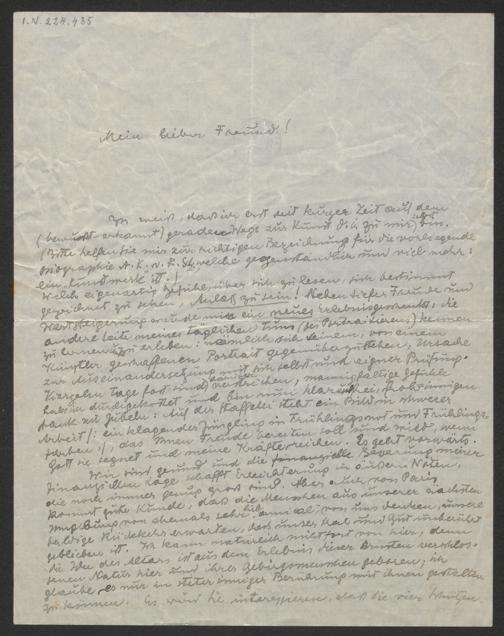 I.N. 224.435
Mein lieber Freund!
Ich weiß, daß ich erst seit kurzer Zeit auf dem
(bewußt erkannt) geraden Wege zur Kunst d.h. zu mir selbst bin.
(Bitte helfen Sie mir zur richtigen Bezeichnung für die vorliegende
Biographie A. L. v. welche gegenständlich und viel mehr:
ein Kunstwerk ist.)
Welch eigenartig Gefühl, über sich zu lesen, sich bestimmt
gezeichnet zu sehen, Anlaß zu sein! Neben dieser Freude und
Wertsteigerung wurde mir ein neues Erlebnis geschenkt: die
andere Seite meines täglichen Tuns (des Portraitierens) kennen
zu lernen, zu erleben: nämlich sich seinem, von einem
Künstler geschaffenen Portrait gegenüberzustehen, Ursache
zur Auseinandersetzung mit sich selbst und eigner Prüfung.
Vierzehn Tage fast sind verstrichen, mannigfaltige Gefühle
haben durchgekostet und bin nun klar, frei, frohsinnigen
Dank zu jubeln: Auf der Staffelei steht ein Bild in schwerer
Arbeit /: ein klagender Jüngling in Frühlingsnot und Frühlings-
farben :/, das Ihnen Freude bereiten soll und wird, wenn
Gott sie segnet und meine Kräfte reichen. Es geht vorwärts.
Wir sind gesund und die Besserung meiner
finanziellen Lage schafft Erleichterung in äußern Nöten,
die noch immer genug groß sind. Aber auch von Paris
kommt gute Kunde, daß die Menschen aus unserer nächsten
Umgebung von ehemals sehr lieb, amical, von uns denken, unsere
baldige Rückkehr erwarten, daß unser Hab und Gut unberührt
geblieben ist. Ich kann natürlich nicht fort von hier, denn
die Idee des Altars ist aus dem Erlebnis dieser ernsten verschlos-
senen Natur hier und ihrer Gebirgsmenschen geboren; ich
glaube, es nur in steter inniger Berührung mit ihnen gestalten
zu können. Es wird Sie interessieren, daß die vier